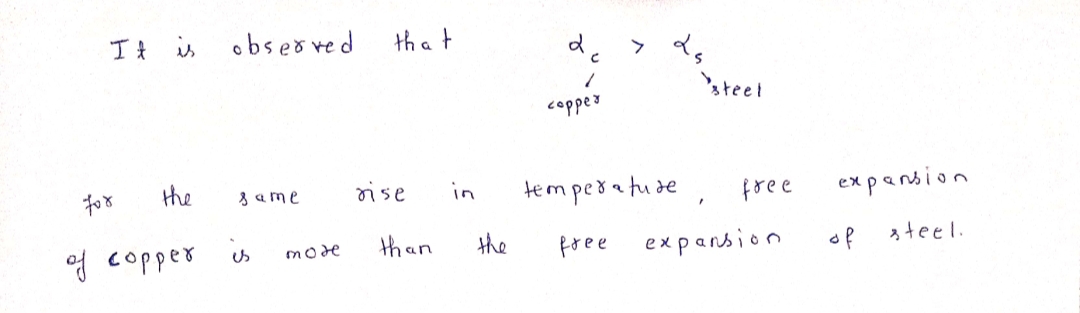 It is observed that α_c > α_s
copper steel
for the same rise in temperature, free expansion
of copper is more than the free expansion of steel.